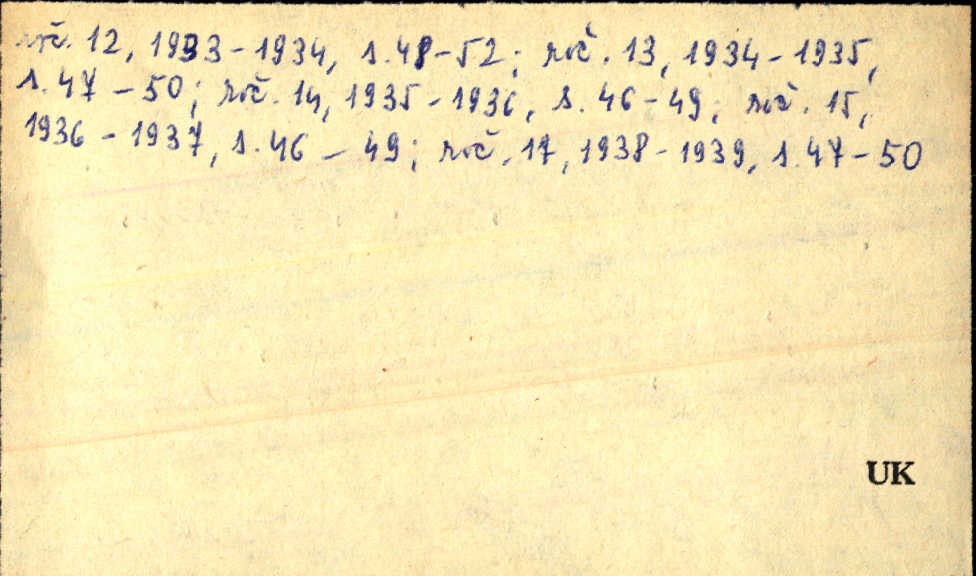 roč. 12, 1933-1934, s. 48-52; roč. 13, 1934-1935,
s. 47-50; roč. 14, 1935-1936, s. 46-49; roč. 15,
1936-1937, s. 46-49; roč. 17, 1938-1939, s. 47-50
UK